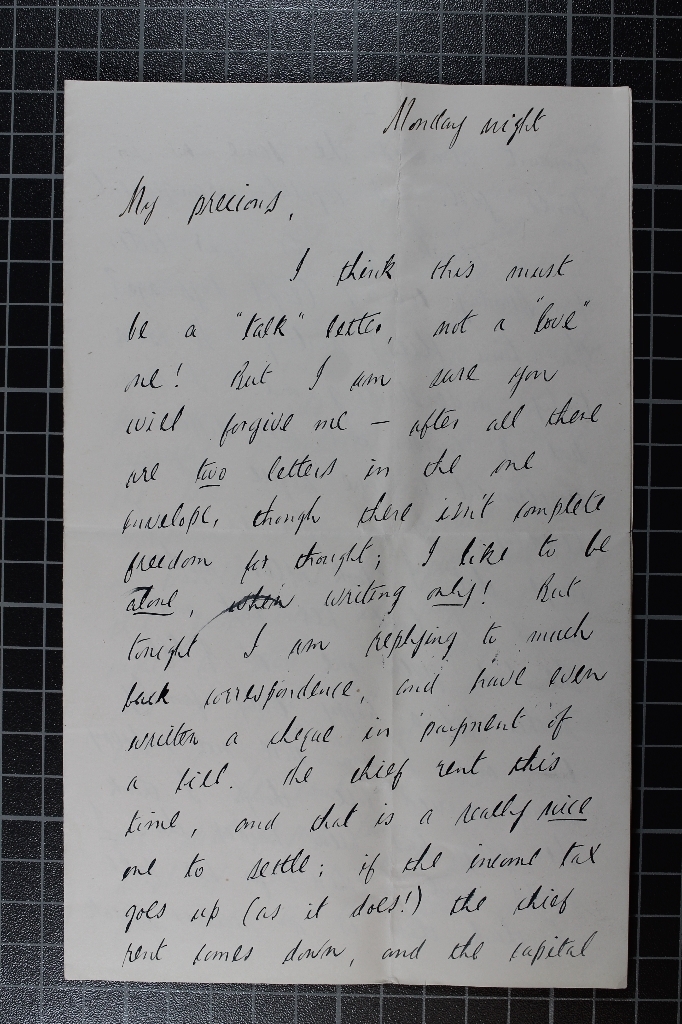 Monday night
My precious,
I think this must
be a "talk" letter, not a "love"
one! But I am sure you
will forgive me – after all there
are two letters in the one
envelope, though there isn't complete
freedom for thought; I like to be
alone, when writing only! But
tonight I am replying to much
back correspondence, and have even
written a cheque in payment of
a bill. The chief rent this
time, and that is a really nice
one to settle; if the income tax
goes up (as it does!) the chief
rent comes down, and the capital